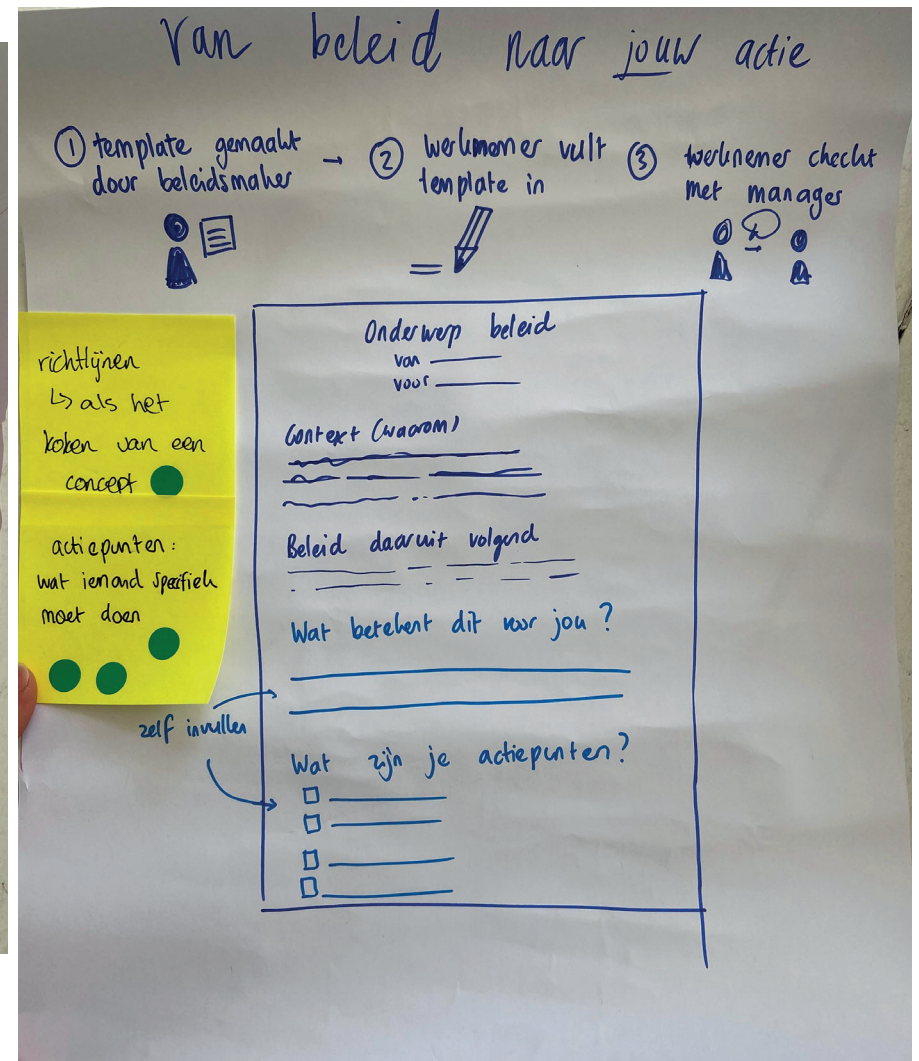 Van beleid naar jouw actie
① template gemaakt
door beleidsmaker
→ ② werknemer vult
template in
③ werknemer checkt
met manager
richtlijnen
↳ als het
koken van een
concept
actiepunten:
wat iemand specifiek
moet doen
Onderwerp beleid
van
voor
Context (waarom)
Beleid daaruit volgend
Wat betekent dit voor jou?
zelf invullen
Wat zijn je actiepunten?